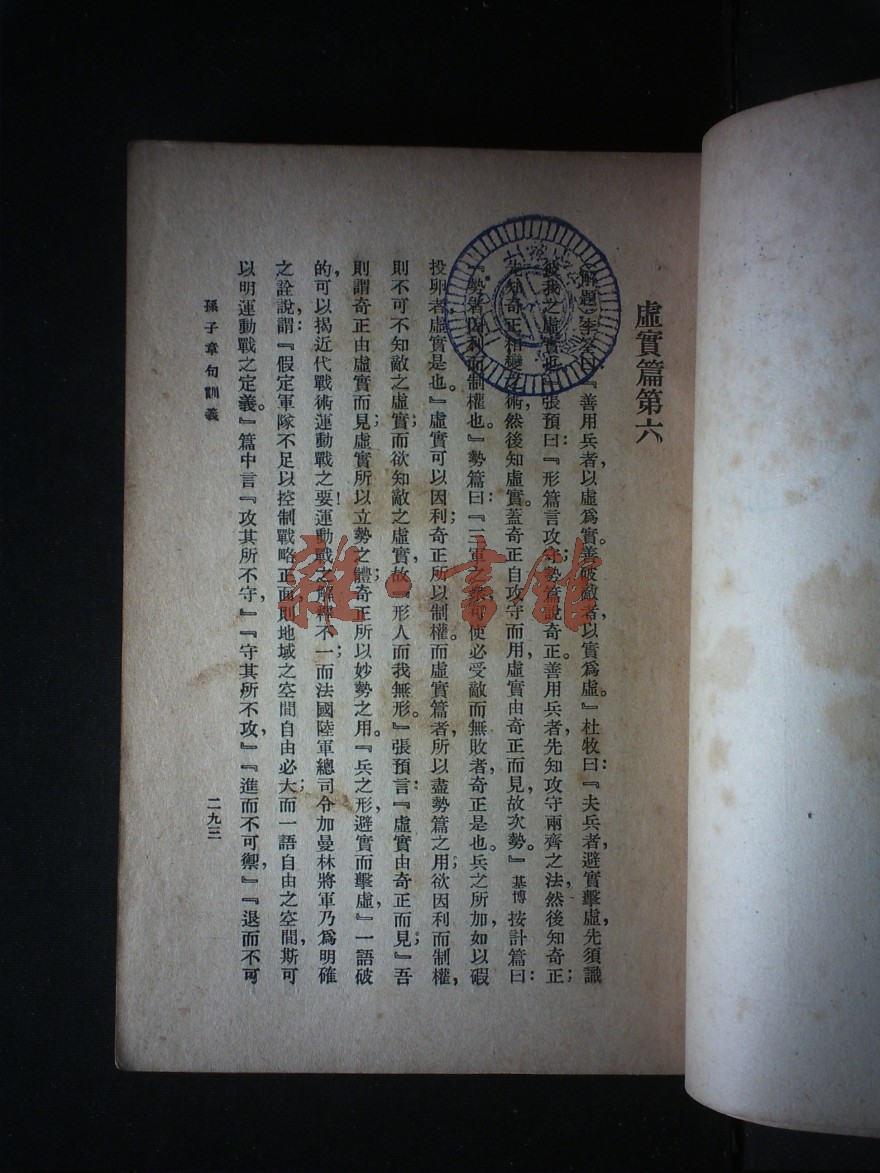 虛實篇第六
解題李筌曰：『善用兵者，以虛爲實。善破敵者，以實爲虛。』杜牧曰：『夫兵者，避實擊虛，先須識
彼我之虛實也。』張預曰：『形篇言攻守；勢篇說奇正。善用兵者，先知攻守兩齊之法，然後知奇正；
先知奇正相變之術，然後知虛實。蓋奇正自攻守而用，虛實由奇正而見，故次勢。』基博按計篇曰：
『勢者，因利而制權也。』勢篇曰：『三軍之衆，可使必受敵而無敗者，奇正是也。兵之所加，如以碬
投卵者，虛實是也。』虛實可以因利；奇正所以制權。而虛實篇者，所以盡勢篇之用；欲因利而制權，
則不可不知敵之虛實；而欲知敵之虛實，故『形人而我無形。』張預言：『虛實由奇正而見；』吾
則謂奇正由虛實而見；虛實所以立勢之體；奇正所以妙勢之用。『兵之形，避實而擊虛』一語破
的，可以揭近代戰術運動戰之要！運動戰之解釋不一；而法國陸軍總司令加曼林將軍乃爲明確
之詮說，謂：『假定軍隊不足以控制戰略正面，則地域之空間自由必大；而一語自由之空間，斯可
以明運動戰之定義。』篇中言『攻其所不守，』『守其所不攻，』『進而不可禦，』『退而不可
孫子章句訓義
二九三
雜·書館